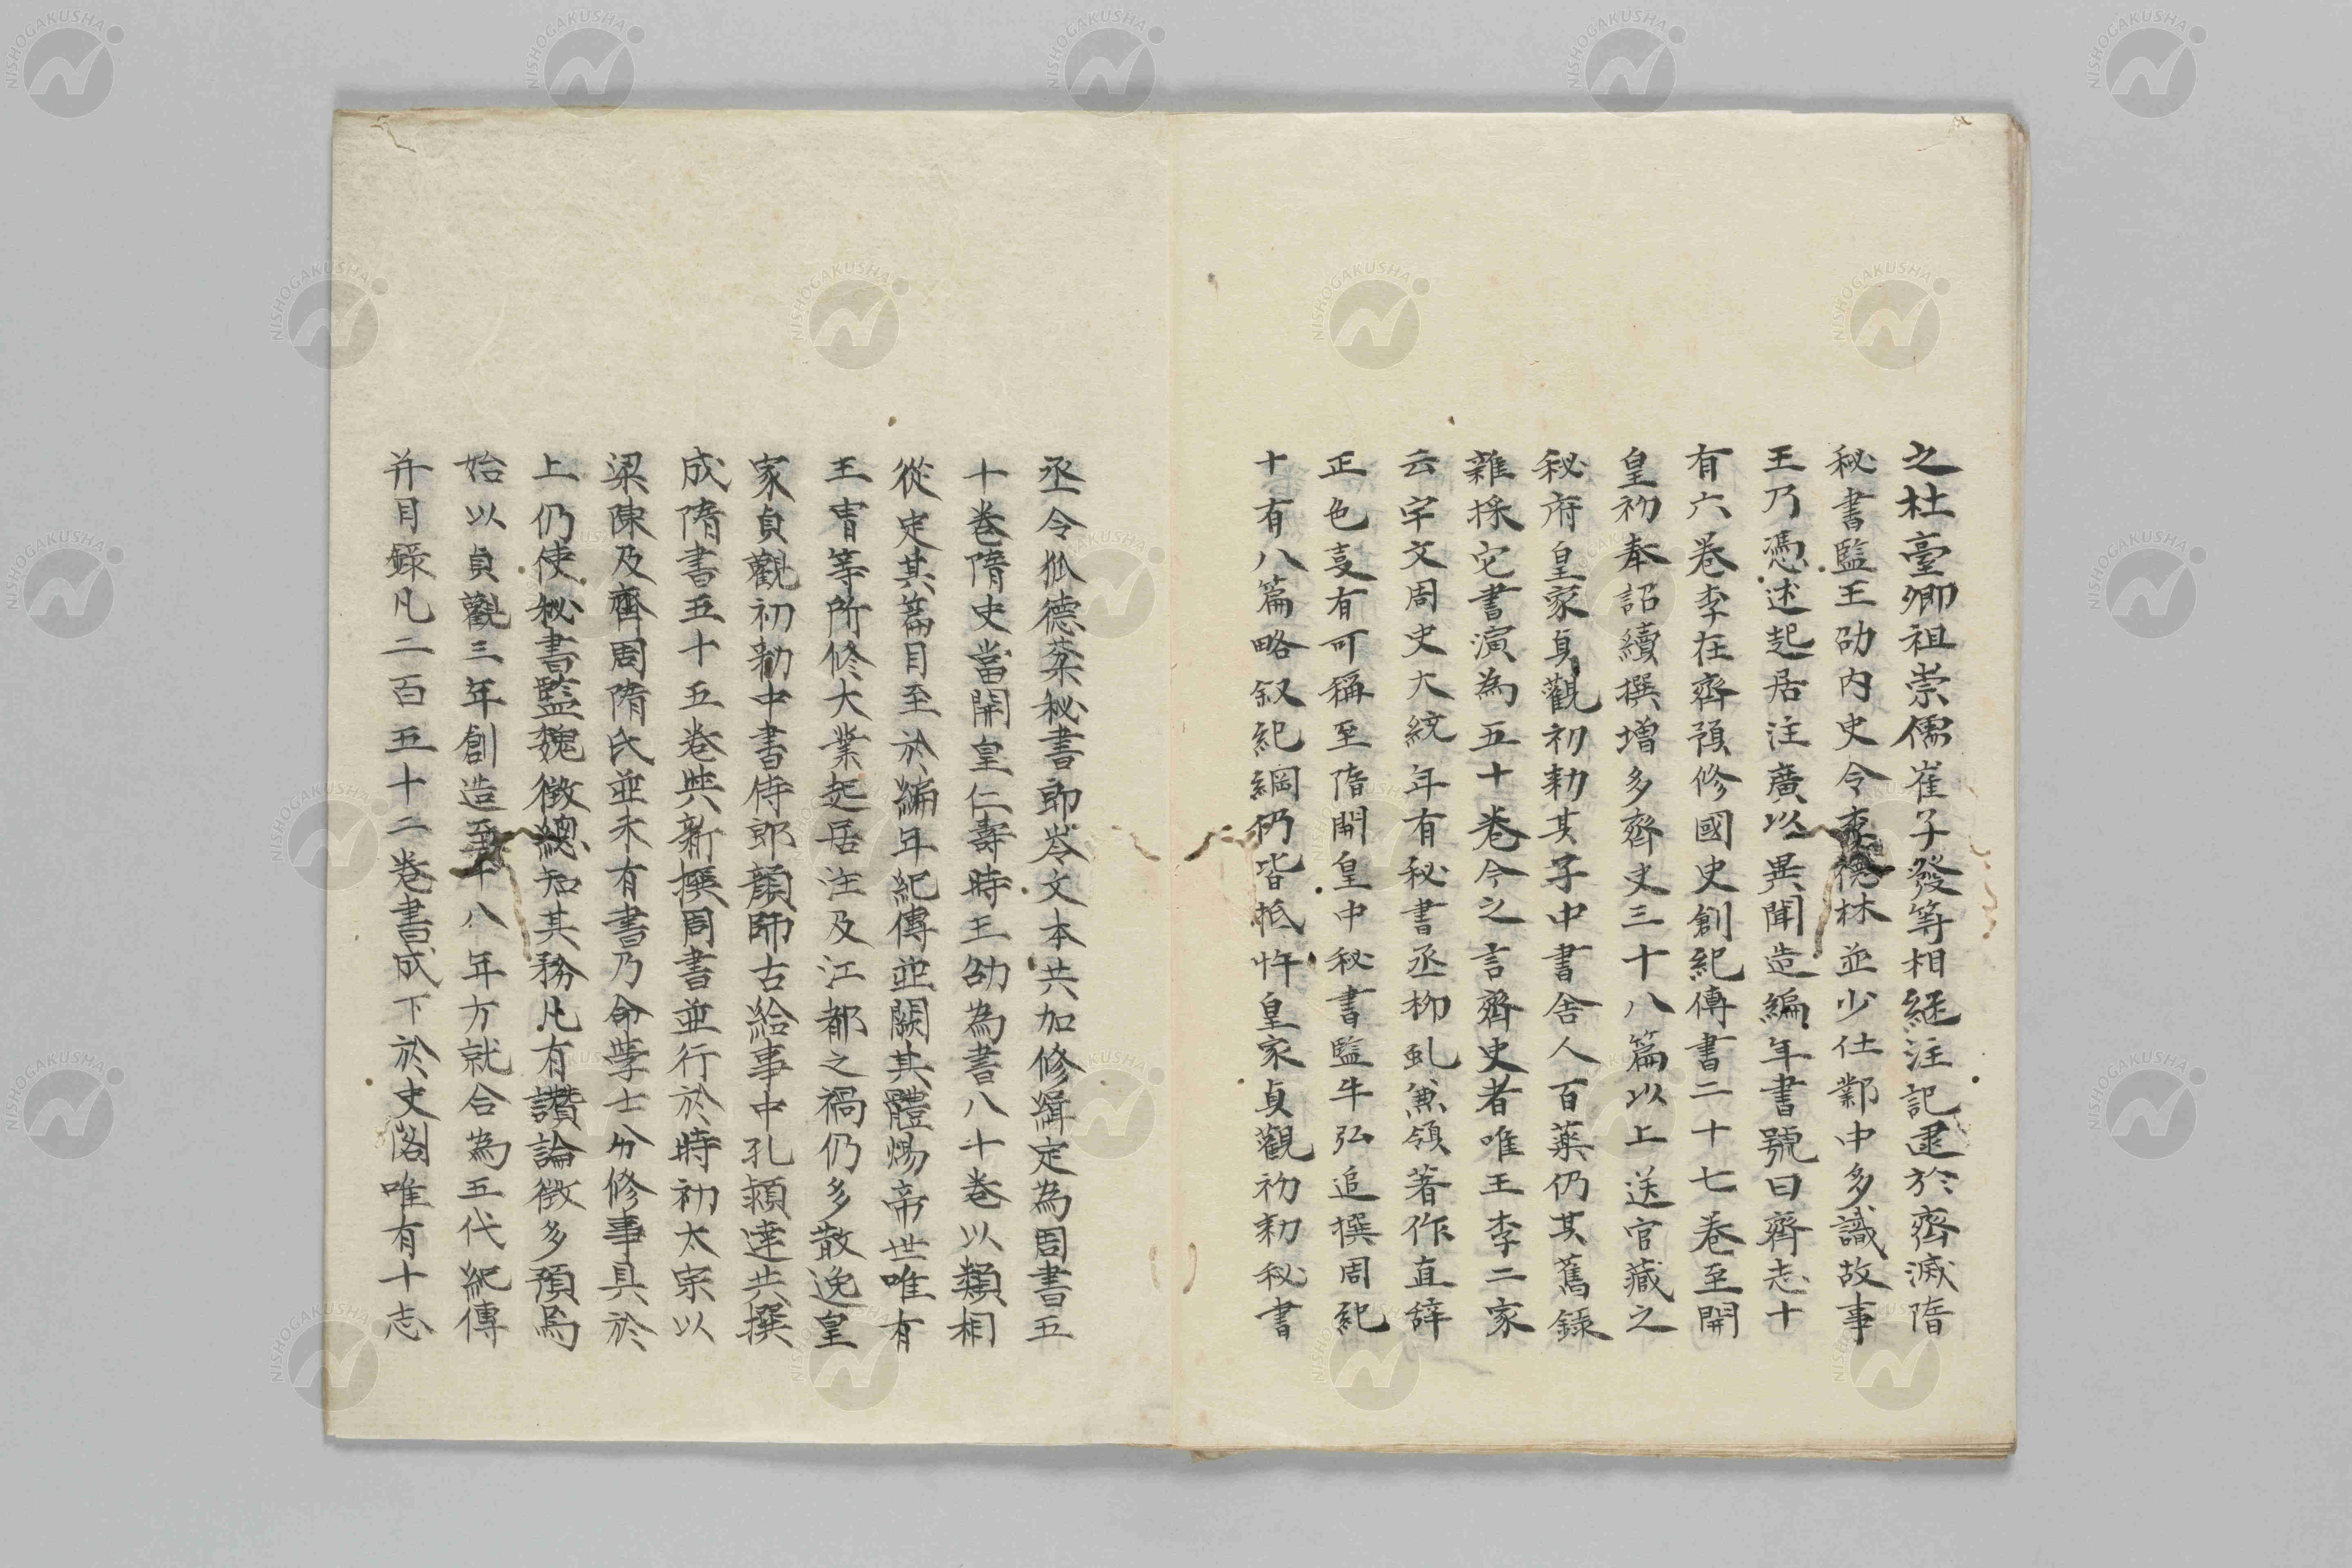 之杜臺卿祖崇儒崔子發等相継注記逮於齊滅隋
秘書監王劭内史令李德林並少仕鄴中多識故事
王乃憑述起居注廣以異聞造編年書號曰齊志十
有六卷李在齊預修國史創紀傳書二十七卷至開
皇初奉詔續撰增多齊史三十八篇以上送官藏之
秘府皇家貞觀初勑其子中書舍人百藥仍其舊錄
雜採它書演為五十卷今之言齊史者唯王李二家
云宇文周史大統年有秘書丞柳虬兼領著作直辞
正色㕝有可稱至隋開皇中秘書監牛弘追撰周紀
十有八篇略叙紀綱仍皆抵忤皇家貞觀初勑秘書
丞令狐德棻秘書郎岑文本共加修緝定為周書五
十卷隋史當開皇仁壽時王劭為書八十卷以類相
從定其篇目至於編年紀傳並闕其體煬帝世唯有
王冑等所修大業起居注及江都之禍仍多散逸皇
家貞觀初勑中書侍郎顏師古給事中孔穎達共撰
成隋書五十五卷與新撰周書並行於時初太宗以
梁陳及齊周隋氏並未有書乃命學士分修事具於
上仍使秘書監魏徵總知其務凡有讚論徵多預焉
始以貞觀三年創造至十八年方就合為五代紀傳
并目録凡二百五十二卷書成下於史閣唯有十志